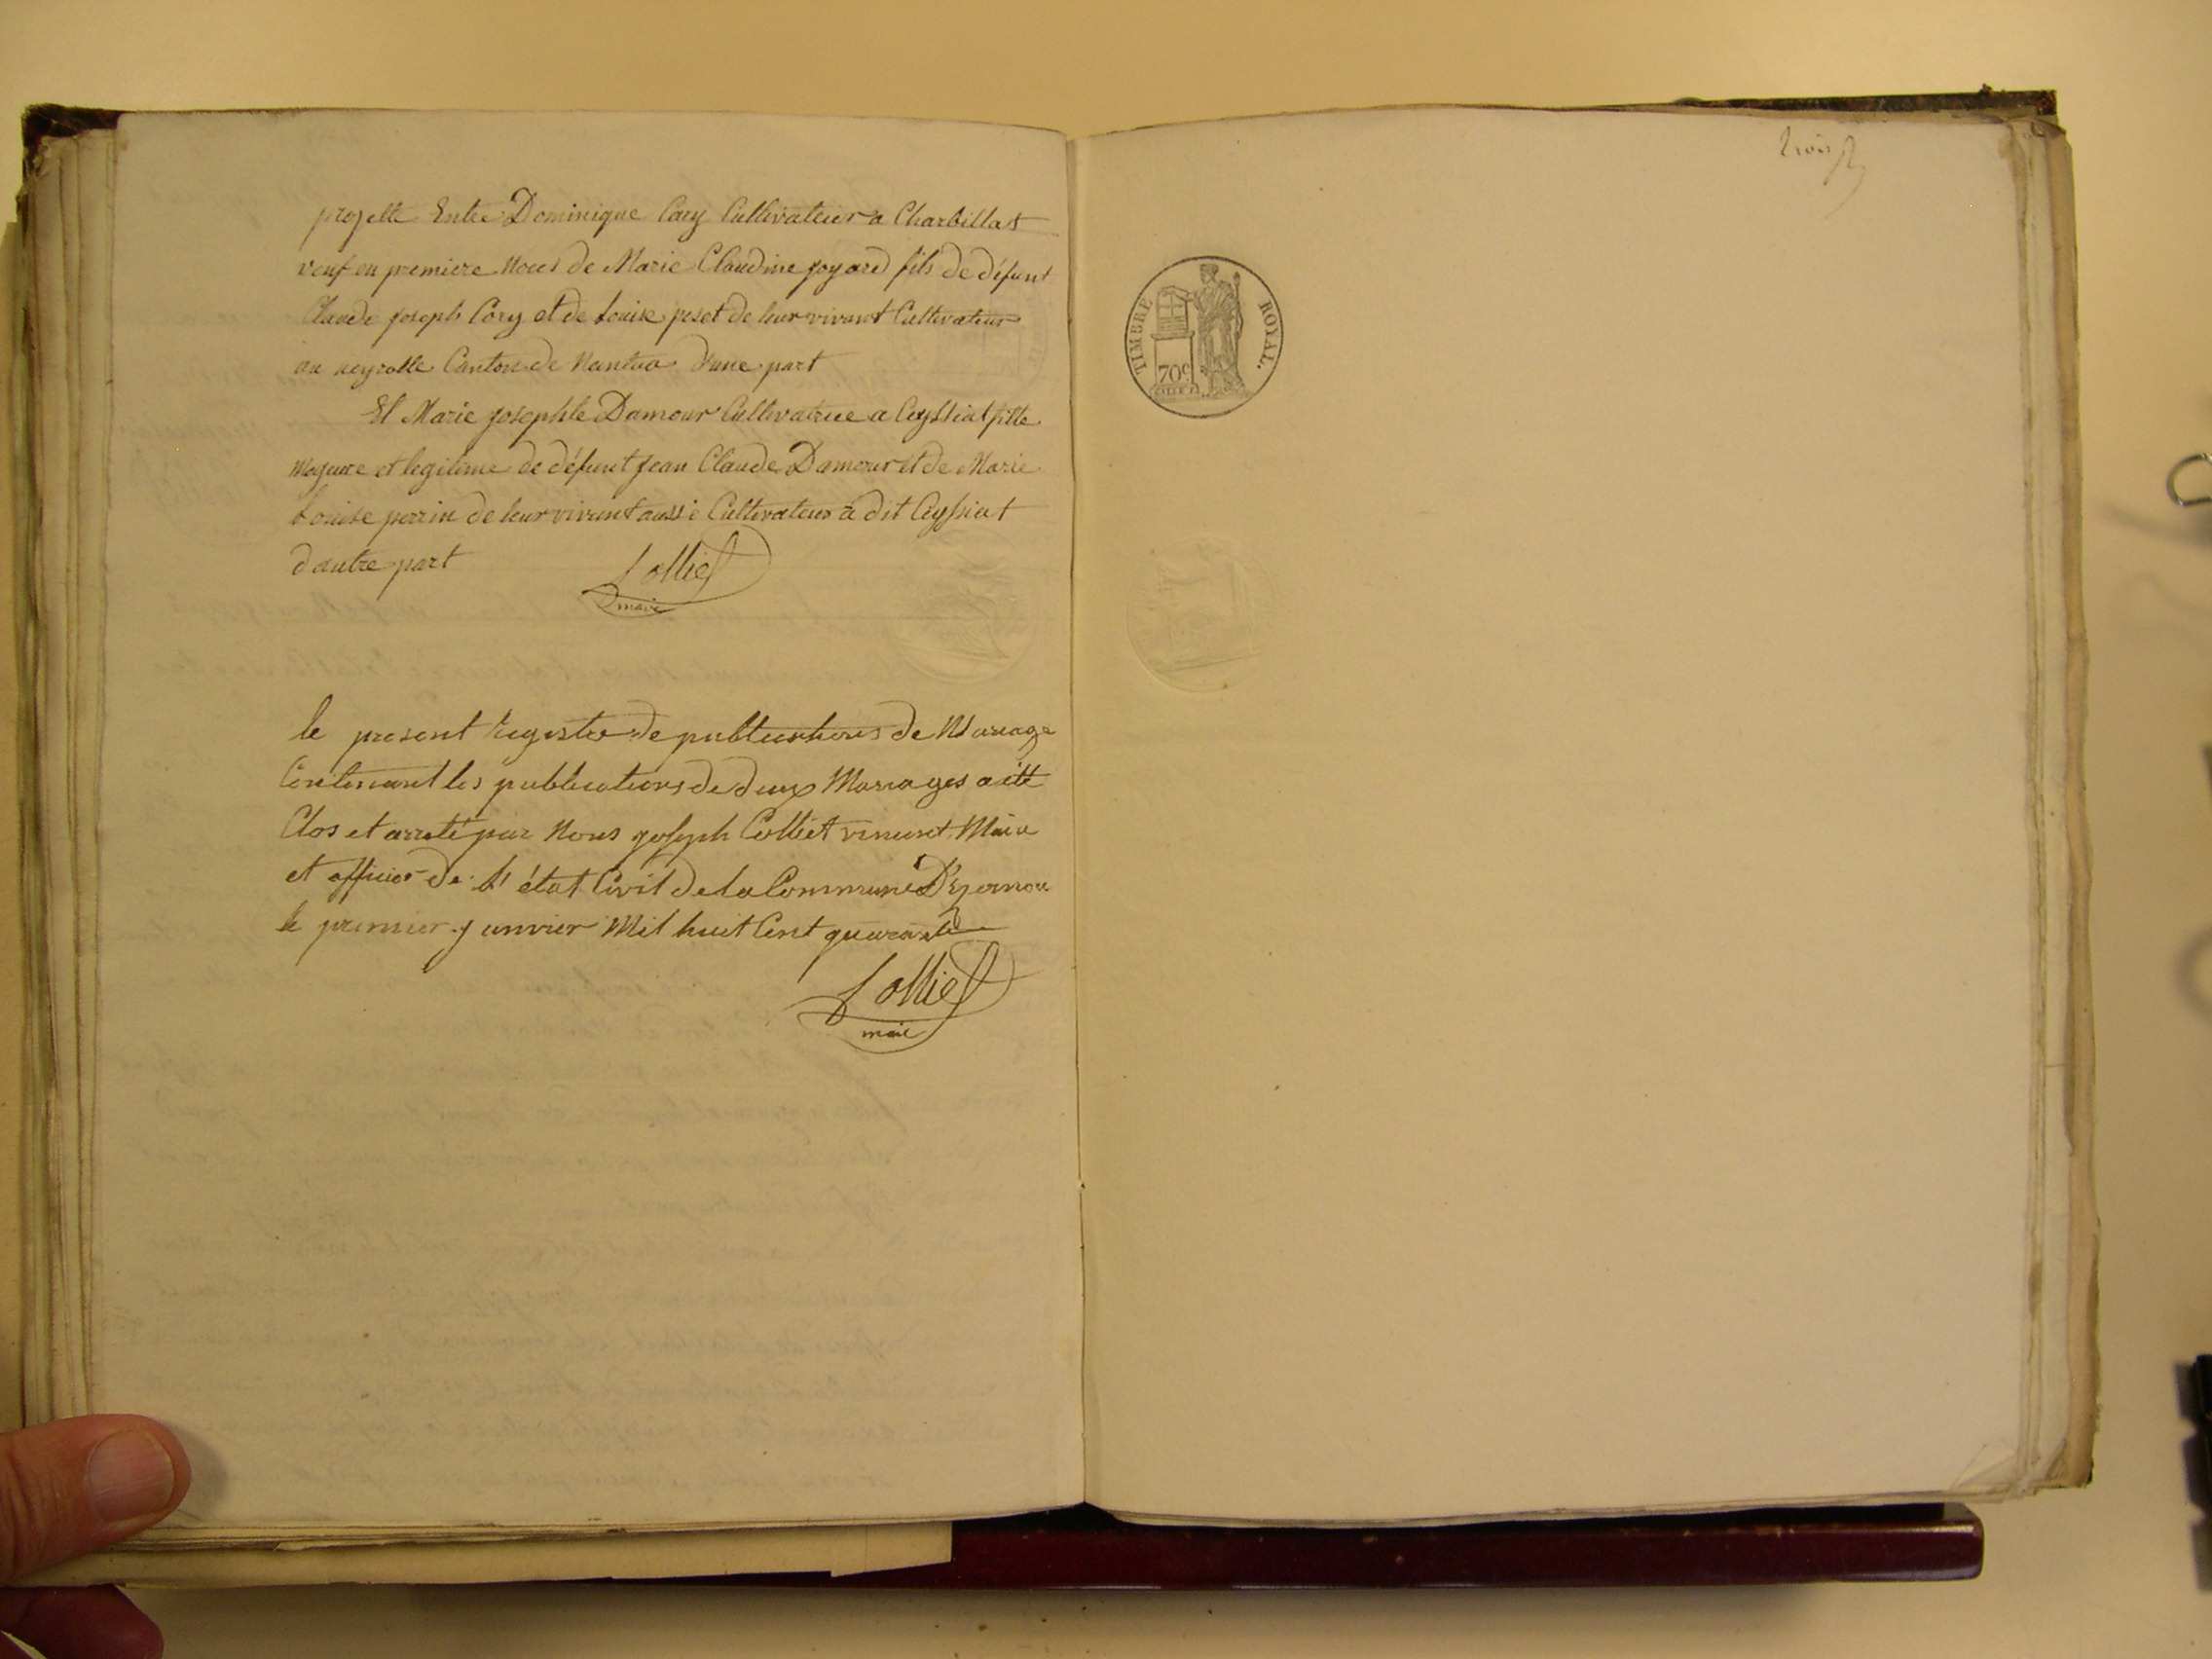 projette Entre Dominique Cory Cultivateur a Charbillat
veuf en premiere Noces de Marie Claudine joyard fils de défunt
Claude joseph Cory et de Louise peset de leur vivant Cultivateur
au neyrolle Canton de Nantua d'une part
Et Marie josephte Damour Cultivatrice a Ceyssiat fille
Majeure et legitime de défunt jean Claude Damour et de Marie
Louise perrin de leur vivant aussi Cultivateur a dit Ceyssiat
d'autre part
Collet
maire
le present registre de publications de Mariage
Contenant les publications de deux Mariages a été
Clos et arreté par Nous joseph Collet vincent Maire
et officier de l'état Civil de la Commune D'
le premier janvier Mil huit Cent quarante
Collet
maire
trois
TIMBRE ROYAL.
70c